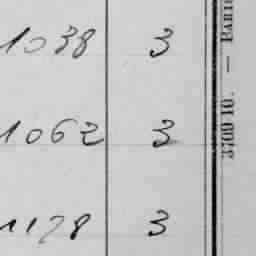 1038 3
1062 3
1178 3
3709 10. — PARIS